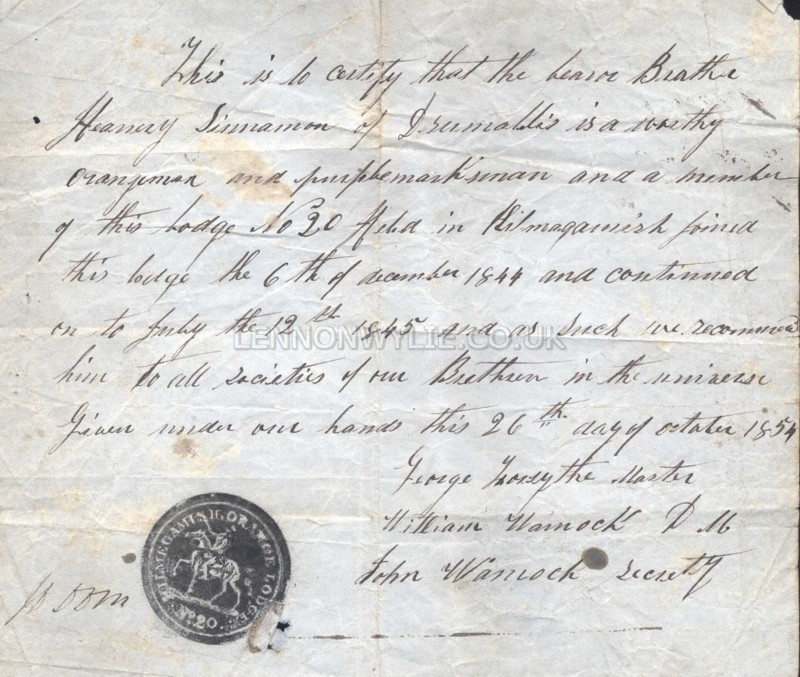 This is to certify that the bearor Brathe
Hearnery Sinnamon of Drumaldis is a worthy
orangeman and purpplemarksman and a member
of this Lodge No 20 Held in Kilmagamish joined
this lodge the 6 th of december 1844 and continued
on to July the 12 th 1845 and as Such we recommend
LENNONWYLIE.CO.UK
him to all societies of our Brethren in the universe
Given under our hands this 26 th day of october 1854
George Forsythe Master
William Warnock D M
John Warnock Secrety
KILMEGAMISH ORANGE LODGE
No 20